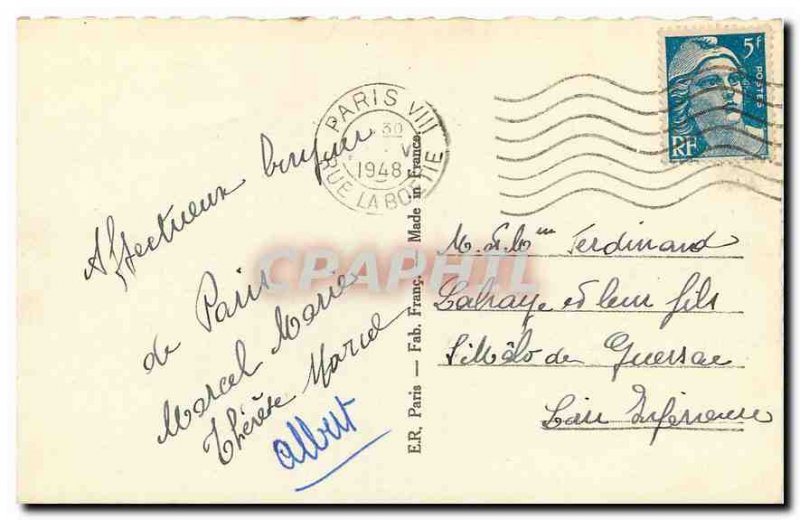 PARIS VIII
30
1948
RUE LA BOETIE
5f
POSTES
RF
Affectueux bonjour
de Paris
Marcel Marie
Thérèse Marcel
Albert
E.R. Paris — Fab. Franç. Made in France.
M. et Mme Ferdinand
Lahaye et leur fils
St Malo de Guersac
Loire Inférieure
CPAPHIL